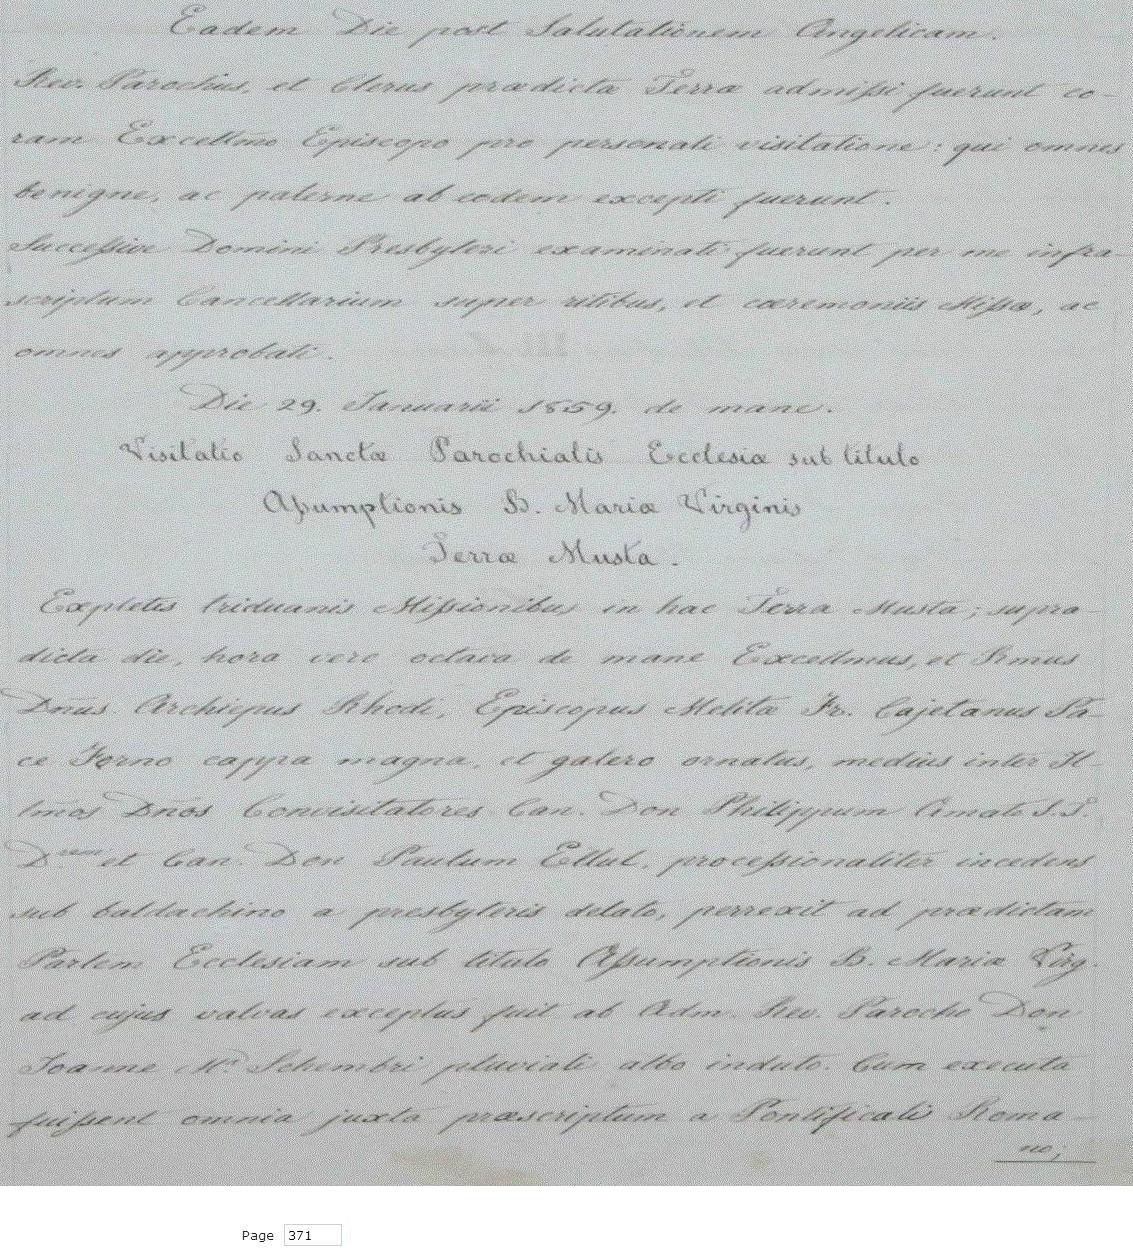 Eadem Die post Salutationem Angelicam.
Rev. Parochus, et Clerus prædictæ Terræ admissi fuerunt co-
ram Excellmo Episcopo pro personali visitatione: qui omnes
benigne, ac paterne ab eodem excepti fuerunt.
Successive Domini Presbyteri examinati fuerunt per me infra-
scriptum Cancellarium super ritibus, et cæremoniis Missæ, ac
omnes approbati.
Die 29. Januarii 1859. de mane.
Visitatio Sanctæ Parochialis Ecclesiæ sub titulo
Assumptionis B. Mariæ Virginis
Terræ Musta.
Expletis triduanis Missionibus in hac Terra Musta; supra-
dicta die, hora vero octava de mane Excellmus, et Rmus
Dnus. Archiepus Rhodi, Episcopus Melitæ Fr. Cajetanus Pa-
ce Forno cappa magna, et galero ornatus, medius inter Il-
lmos Dnos Convisitatores Can. Don Philippum Amato S.T.
Drem et Can. Don Paulum Ellul, processionaliter incedens
sub baldachino a presbyteris delato, perrexit ad prædictam
Parlem Ecclesiam sub titulo Assumptionis B. Mariæ Virg.
ad cujus valvas exceptus fuit ab Adm. Rev. Parocho Don
Joanne Ma. Schembri pluviali albo induto. Cum executa
fuissent omnia juxta præscriptum a Pontificali Roma-
no;
Page 371